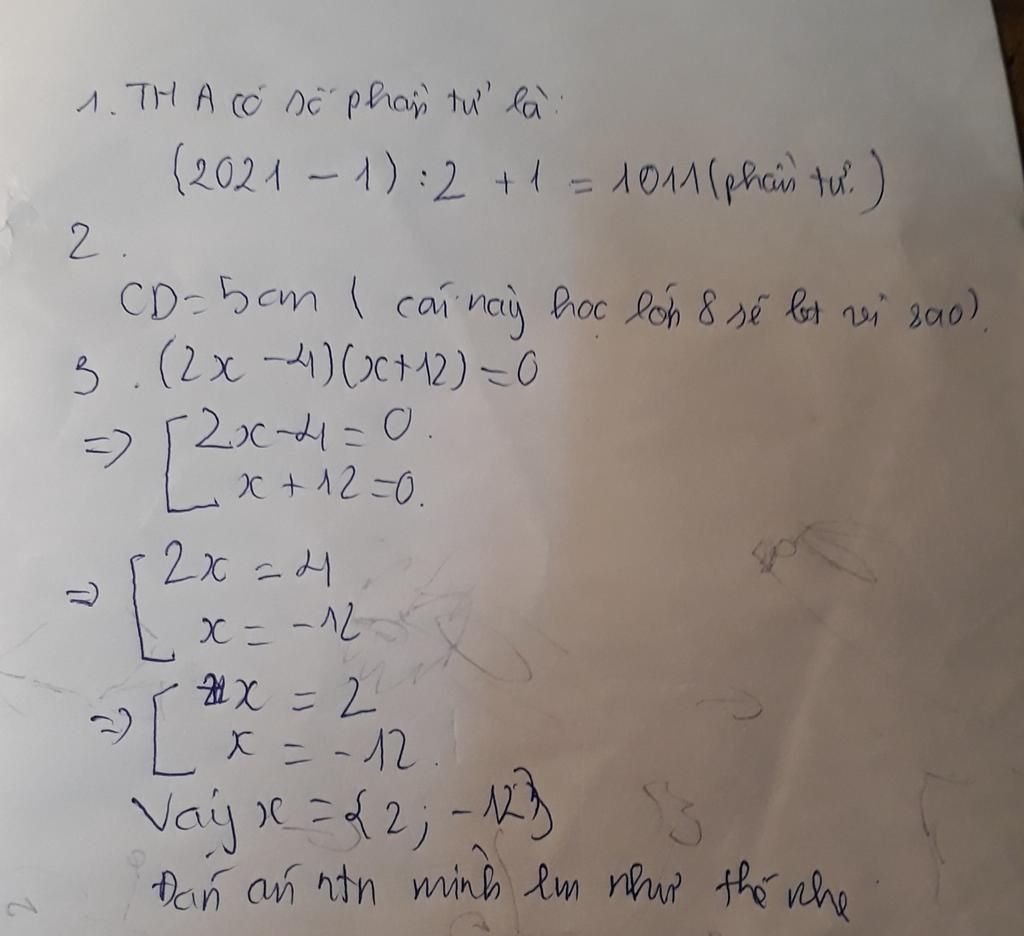 1. TH A có số phần tử là:
(2021 - 1) : 2 + 1 = 1011 (phần tử)
2.
CD = 5 cm ( cái này học lớp 8 sẽ bt vì sao).
3. (2x - 4)(x+12) = 0
=> [ 2x - 4 = 0.
x + 12 = 0.
=> [ 2x = 4
x = -12
=> [ x = 2
x = -12.
Vậy x = {2; -12}
Đáp án ntn mình lm như thế nhe